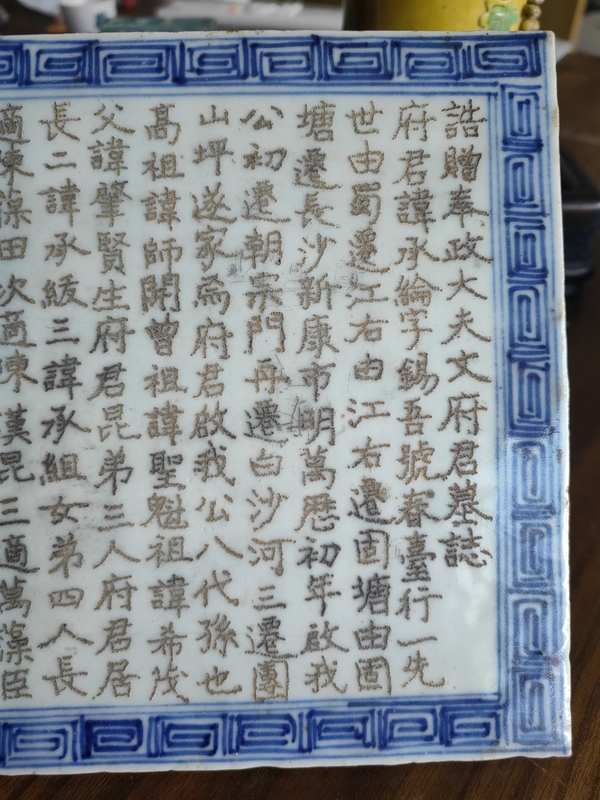 誥贈奉政大夫文府君墓誌
府君諱承綸字錫吾號春臺行一先
世由蜀遷江右由江右遷固塘由固
塘遷長沙新康市明萬歷初年啟我
公初遷朝宗門再遷白沙河三遷團
山坪遂家焉府君啟我公八代孫也
高祖諱師閎曾祖諱聖魁祖諱希茂
父諱肇賢生府君昆弟三人府君居
長二諱承紱三諱承組女弟四人長
適陳藻田次適陳漢昆三適萬藻臣